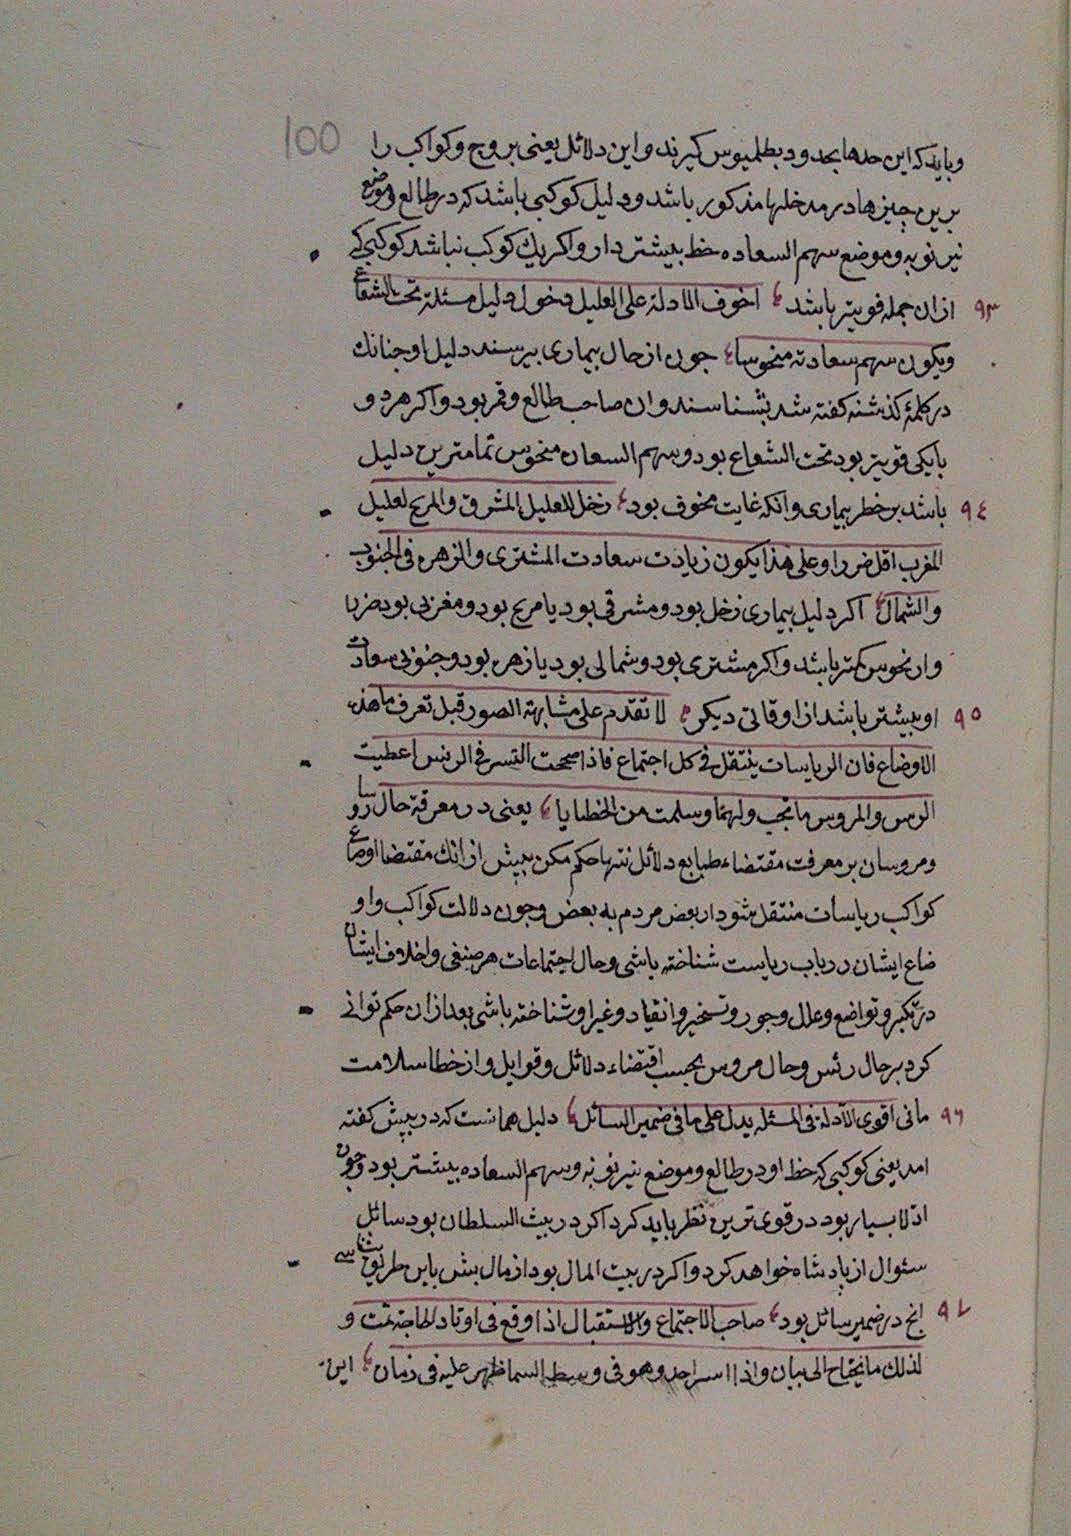 100
وباید که این حدها بحدود بطلمیوس گیرند و این دلائل یعنی بروج و کواکب را
برین چیزها در مدخلها مذکور باشد و دلیل کوکبی باشد که در طالع و موضع
نیر نوبه و موضع سهم السعاده حظ بیشتر دارد و اکر یک کوکب نباشد کوکبی که
۹۳ ازان جمله قویتر باشد اخوف الادلة علی العلیل دخول دلیل مسئلة تحت الشعاع
ویکون سهم سعادته منحوسا جون از حال بیماری بپرسند دلیل او جنانک
در کلمهٔ کذشته کفته شد بشناسند وان صاحب طالع و قمر بود واکر هر دو
یا یکی قویتر بود تحت الشعاع بود و سهم السعاده منحوس تمامترین دلیل
۹٤ باشد بر خطر بیماری وانکه غایت مخوف بود زحل للعلیل المشرق والمریخ لعلیل
المغرب اقل ضررا وعلی هذا یکون زیادت سعادت المشتری والزهره فی الجنوب
والشمال اکر دلیل بیماری زحل بود و مشرقی بود یا مریخ بود و مغربی بود ضرر
وان نحوس کمتر باشد واکر مشتری بود و شمالی بود یا زهره بود و جنوبی سعادت
۹٥ او بیشتر باشد از اوقاتی دیکر لا تقدم علی مشابهة الصور قبل تعرف ما هذه
الاوضاع فان الریاسات ینتقل فی کل اجتماع فاذا صححت التسر فی الرئس اعطیت
الرس والمروس ما تجب ولهما وسلمت من الخطایا یعنی در معرفة حال روسا
ومروسان بر معرفت مقتضاء طبایع دلائل تنها حکم مکن پیش از انک مقتضا اوضاع
کواکب ریاسات منتقل شود از بعض مردم به بعض وجون دلالت کواکب و او
ضاع ایشان در باب ریاست شناخته باشی وحال اجتماعات هر صنفی واخلاق ایشان
در تکبر و تواضع وعدل وجور وتسخیر وانقیاد وغیر او شناخته باشی بعد ازان حکم توانی
کرد بر حال رئس وحال مروس بحسب اقتضاء دلائل و قوابل واز خطا سلامت
۹٦ مانی اقوی الادلة فی المسئله یدل علی ما فی ضمیر السائل دلیل همانست که در پیش کفته
امد یعنی کوکبی که حظ او در طالع و موضع نیر نوبه و سهم السعاده بیشتر بود و جون
ادلا بسیار بود در قوی ترین نظر باید کرد اکر در بیت السلطان بود سائل
سئوال از پادشاه خواهد کرد و اکر در بیت المال بود از مال بس باین طریق بشناسی
۹۷ انچ در ضمیر سائل بود صاحب الاجتماع والاستقبال اذا وقع فی اوتاد الحاجة تمت و
لذلک ما یحتاج الی بیان واذا اسر احد وهو فی وسط السما ظهر علیه فی زمان این